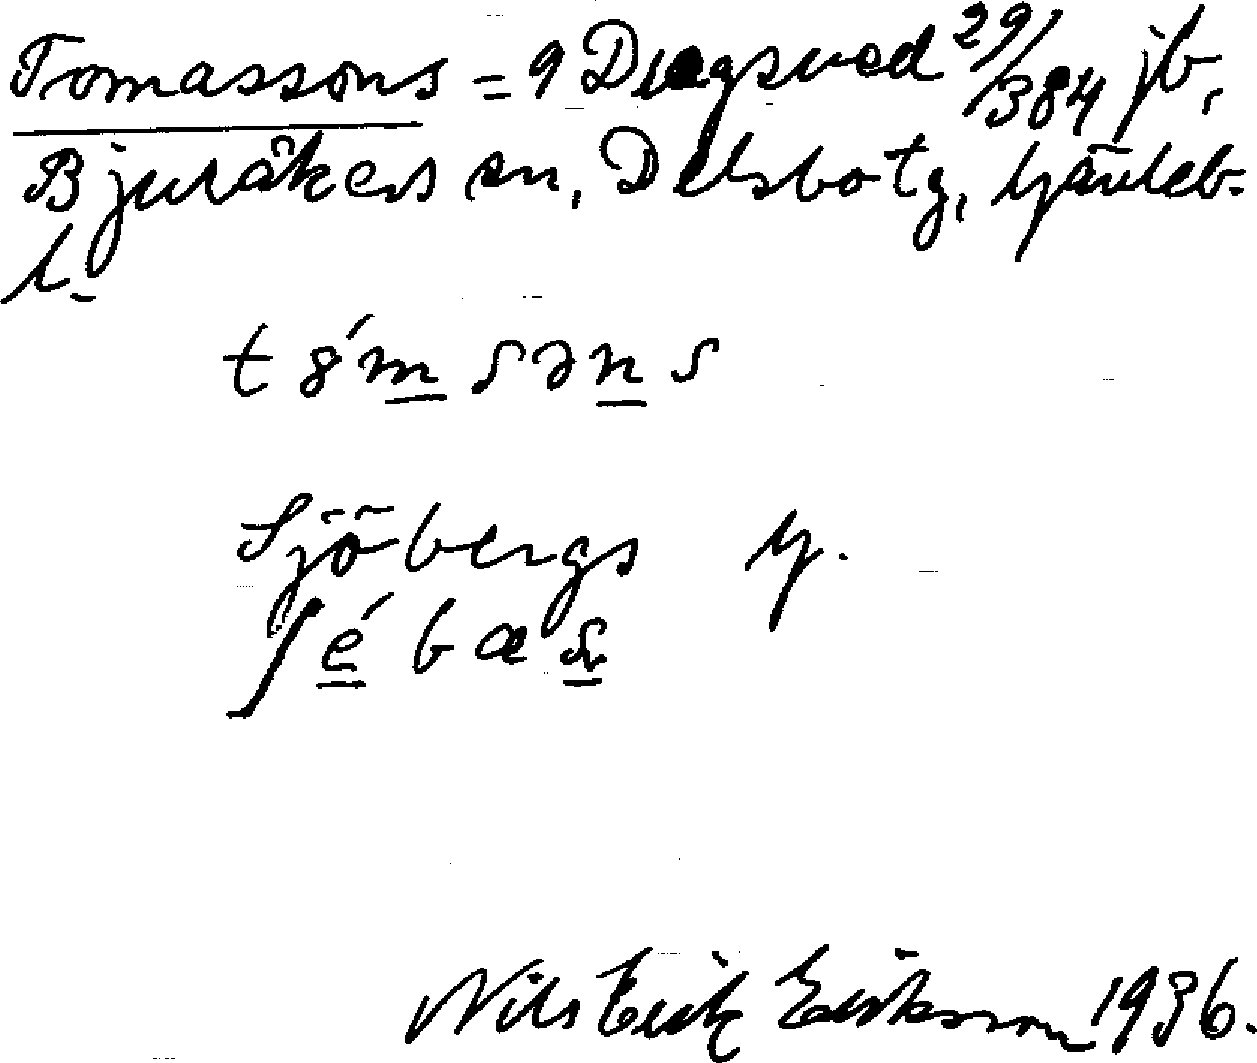 Tomassons = 9 Dragsved 29/384 jb,
Bjuråkers sn, Delsbo tg, Gävleb.
l.
t8́m sən s
Sjöbergs y.
ʃé bæs
Nils Erik Eriksson 1936.